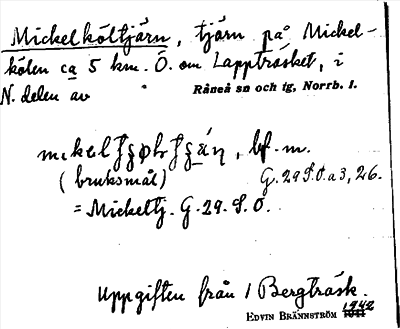 Mickelköltjärn, tjärn på Mickel-
kölen ca 5 km. Ö. om Lappträsket, i
N. delen av Råneå sn och tg, Norrb. l.
bf. m.
(bruksmål) G. 29 S.Ö. a 3, 26.
= Mickeltj. G. 29. S. Ö.
Uppgiften från / Bergträsk.
EDVIN BRÄNNSTRÖM 1942